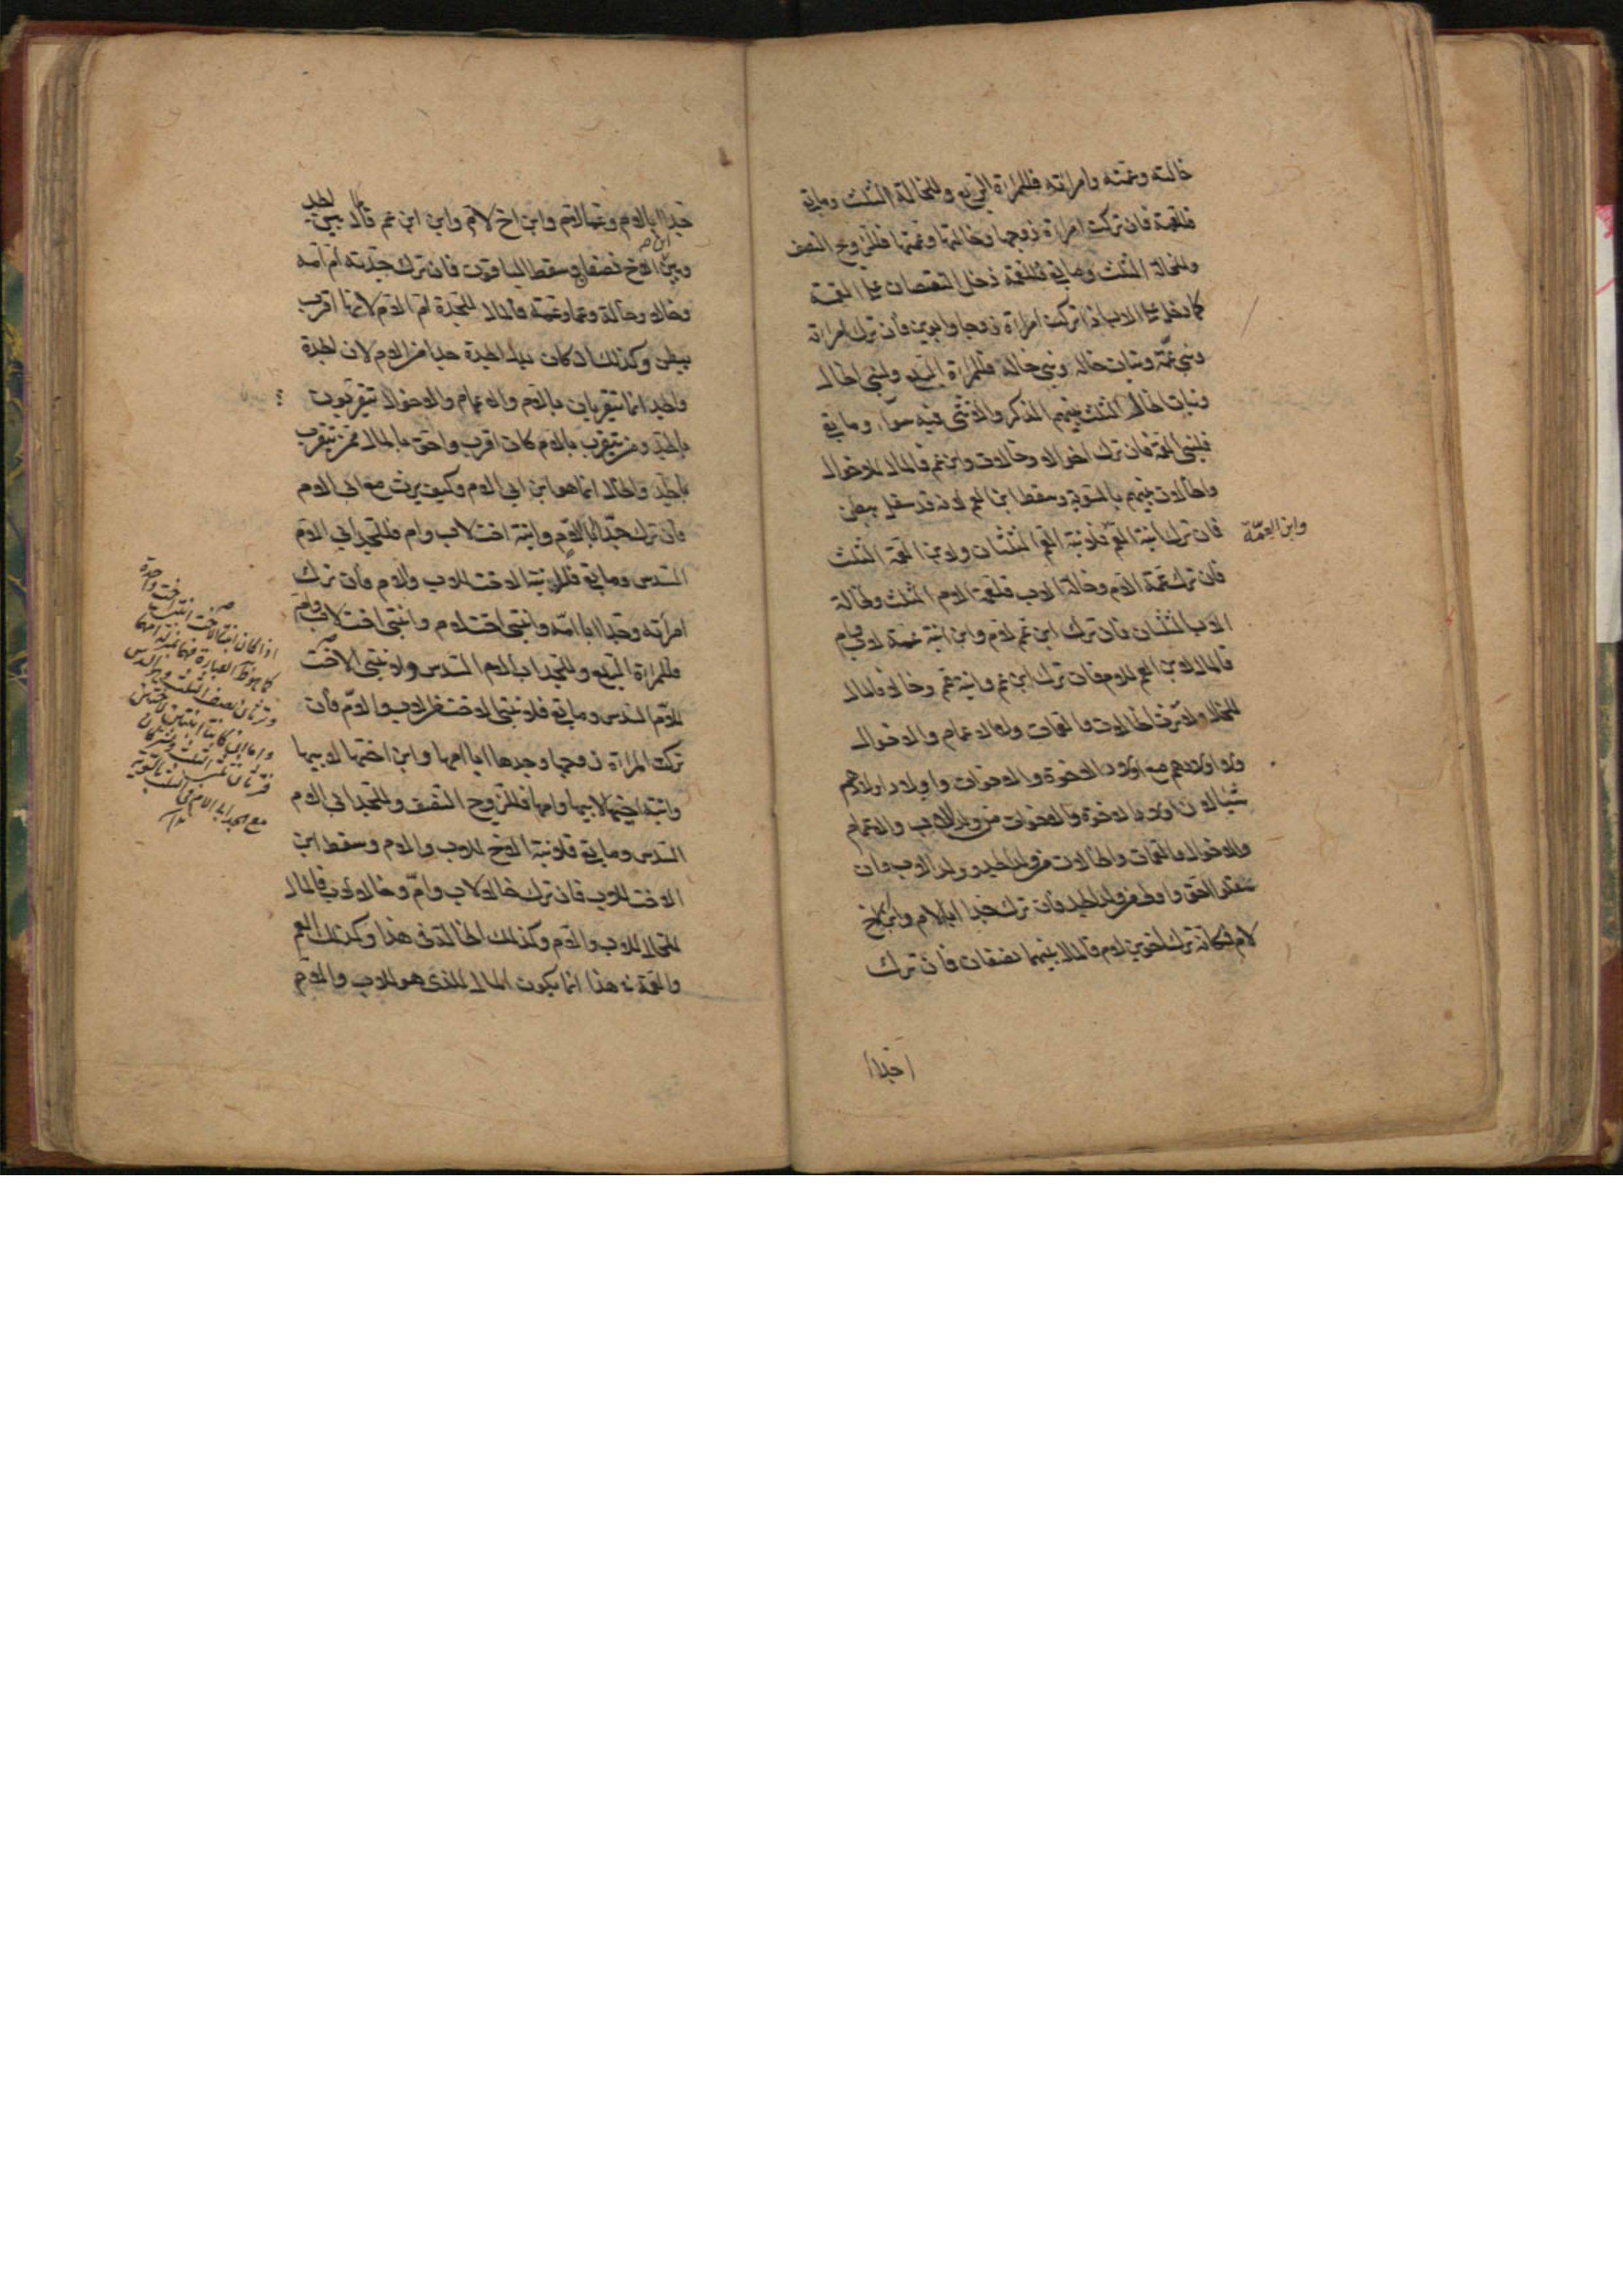 خالته وعمته وامراته فللمراة الربع وللخالة الثلث وما بقى
فللعمة فان تركت امراة زوجها وخالتها وعمتها فللزوج النصف
وللخالة الثلث وما بقى فللعمة دخل النقصان على العمة
كما دخل على الاب اذا تركت امراة زوجها وابوين فان ترك امراته
وبنى عمة وبنات خاله وبنى خالة فللمراة الربع ولبنى الخال
وبنات الخال الثلث بينهم الذكر والانثى فيه سواء وما بقى
فلبنى العمة فان ترك اخوالا وخالات وابن عم فالمال للاخوال
والخالات بينهم بالسوية وسقط ابن العم لانه قد سفل ببطن
فان ترك ابنة العم فلابنة العم الثلثان ولابن العمة الثلث
وابن العمة
فان ترك عمة الام وخالة الاب فلعمة الام الثلث ولخالة
الاب الثلثان فان ترك ابن عم لام وابن ابنة عمة لاب وام
فالمال لابن العم للام فان ترك ابن عم وابنة عم وخالا فالمال
للخال ولا يرث الخالات والعمات ولا الاعمام والاخوال
ولا اولادهم مع اولاد الاخوة والاخوات واولاد اولادهم
شيئا لان اولاد الاخوة والاخوات من ولد الاب والاعمام
والاخوال والعمات والخالات من ولد الجد وولد الاب وان
سفلوا احق واولى من ولد الجد فان ترك جدا ابا لام وابن اخ
لام فكانه ترك اخوين لام فالمال بينهما نصفان فان ترك
جدا
جدا ابا لام وعما لام وابن اخ لام وابن ابن عم فالمال بين الجد
وبين ابن الاخ نصفان وسقط الباقون فان ترك جدته ام امه
وخالا وخالة وعما وعمة فالمال للجدة ام الام لانها اقرب
ببطن وكذلك ان كان بدل الجدة جدا من الام لان الجدة
والجد انما يتقربان بالام والاعمام والاخوال يتقربون
بالجد ومن يتقرب بالام كان اقرب واحق بالمال ممن يتقرب
بالجد والخال انما هو ابن ابى الام وكيف يرث مع ابى الام
فان ترك جدا ابا الام وابنة اخت لاب وام فللجد ابى الام
السدس وما بقى فلابنة الاخت للاب والام فان ترك
امراته وجدا ابا امه وابنتى اخت لام وابنتى اخت لاب وام
فللمراة الربع وللجد اب الام السدس ولابنتى الاخت
للام السدس وما بقى فلابنتى الاخت للاب والام فان
تركت المراة زوجها وجدها ابا امها وابن اختها لابيها
وابنة اخيها لابيها وامها فللزوج النصف وللجد ابى الام
السدس وما بقى فلابنة الاخ للاب والام وسقط ابن
الاخت للاب فان ترك خالا لاب وام وخالا لاب فالمال
للخال للاب والام وكذلك الخالة فى هذا وكذلك العم
والعمة فى هذا انما يكون المال للذى هو للاب والام
اذا كان ابنتا الاخت ابنتى اخت واحدة
مع الجد اب الام فى الثلث بالسوية